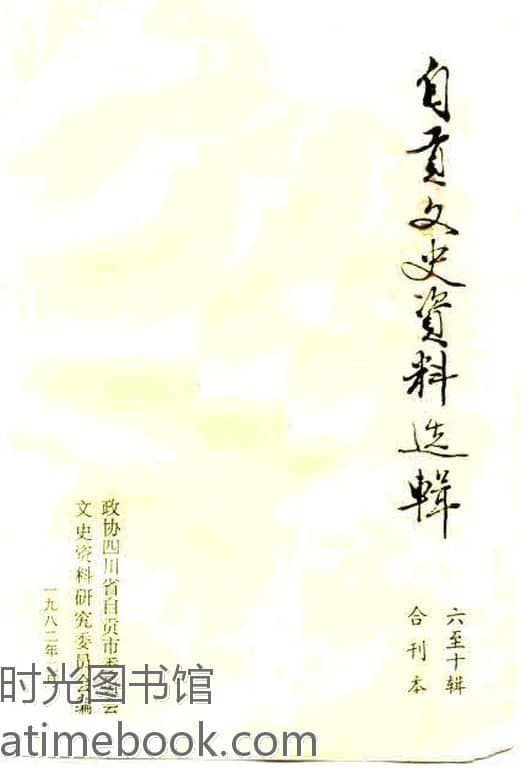 自貢文史資料选輯
六至十辑
合刊本
政协四川省自贡市委员会
文史资料研究委员会编
一九八二年
时光图书馆
atimebook.com